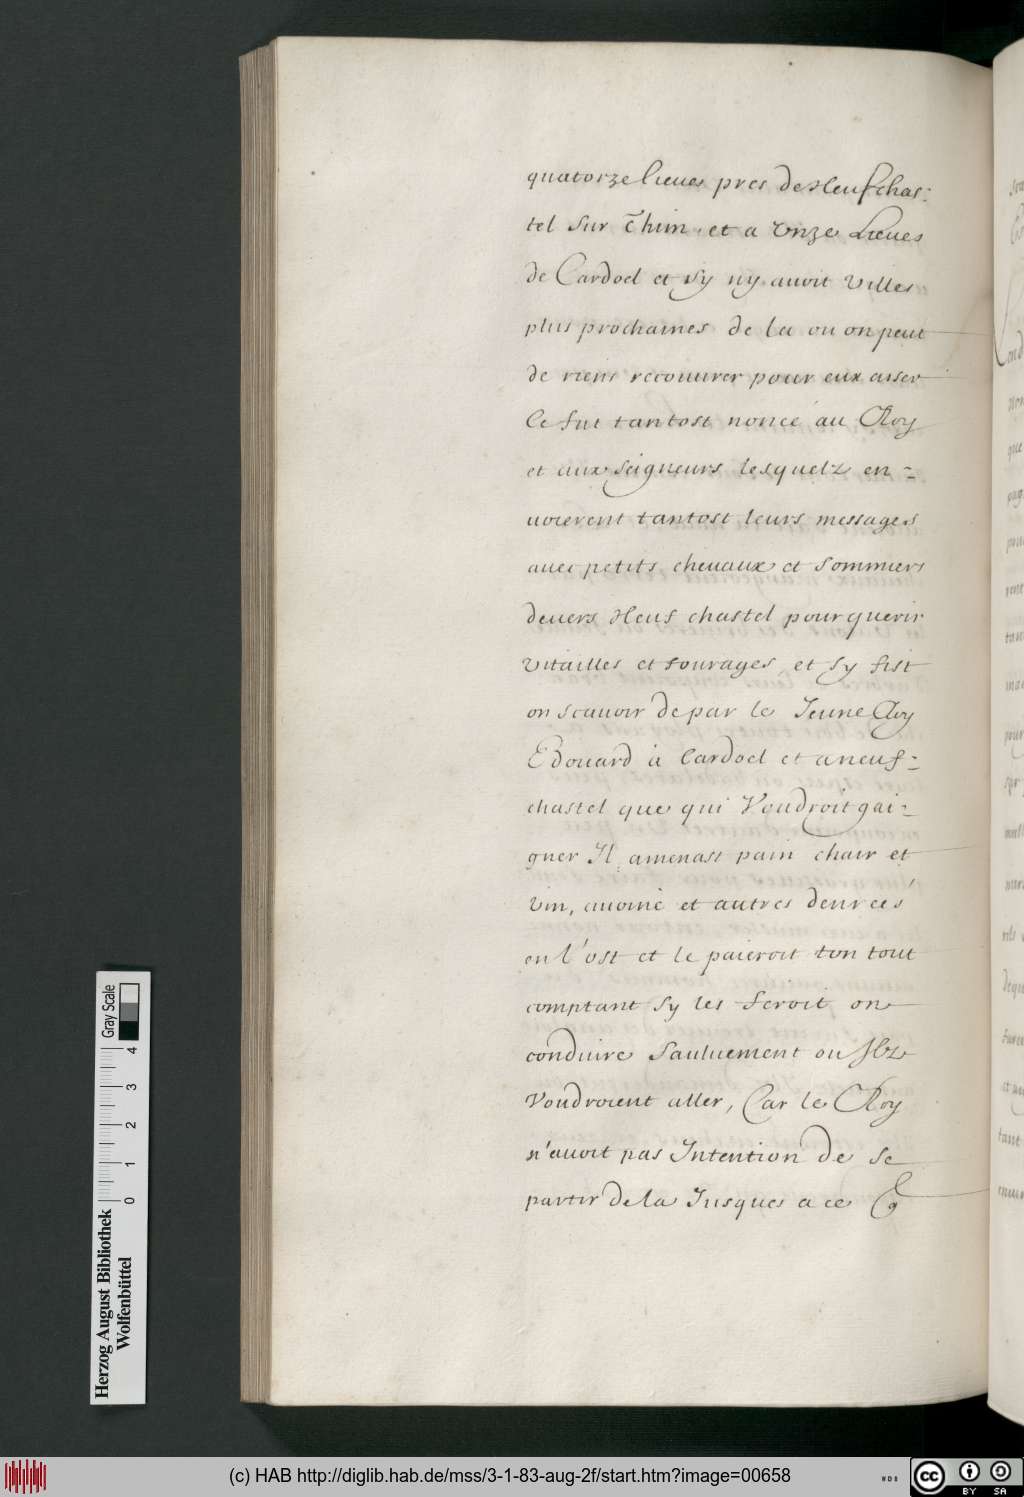 quatorze lieues pres de Neufchas:
tel sur Thin et a Vnze Lieues
de Cardoel et sy ny auoit Villes
plus prochaines de la ou on peut
de riens recouurer pour eux aiser
Ce fut tantost noncé au Roy
et aux seigneurs lesquelz en=
uoierent tantost leurs messages
auec petits cheuaux et sommiers
deuers Neuf chastel pour querir
Vitailles et fourages, et sy fist
on scauoir de par le Jeune Roy
Edouard à Cardoel et a neuf=
chastel que qui Voudroit gai=
gner Il amenast pain chair et
Vin, auoine et autres denrées
en l'ost et le paieroit ton tout
comptant sy les feroit on
conduire sauluement ou Ilz
Voudroient aller, Car le Roy
n'auoit pas Intention de se
partir de la Jusques a ce q
Herzog August Bibliothek
Wolfenbüttel
0 1 2 3 4
Gray Scale
(c) HAB http://diglib.hab.de/mss/3-1-83-aug-2f/start.htm?image=00658
WDB
cc BY SA